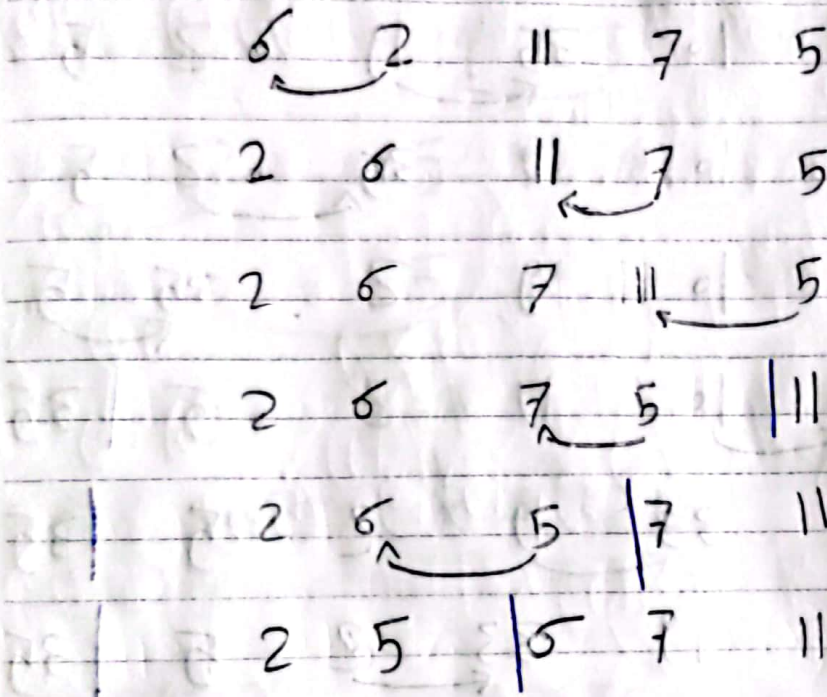 6 2 11 7 5
2 6 11 7 5
2 6 7 11 5
2 6 7 5 | 11
| 2 6 5 | 7 11
| 2 5 | 6 7 11